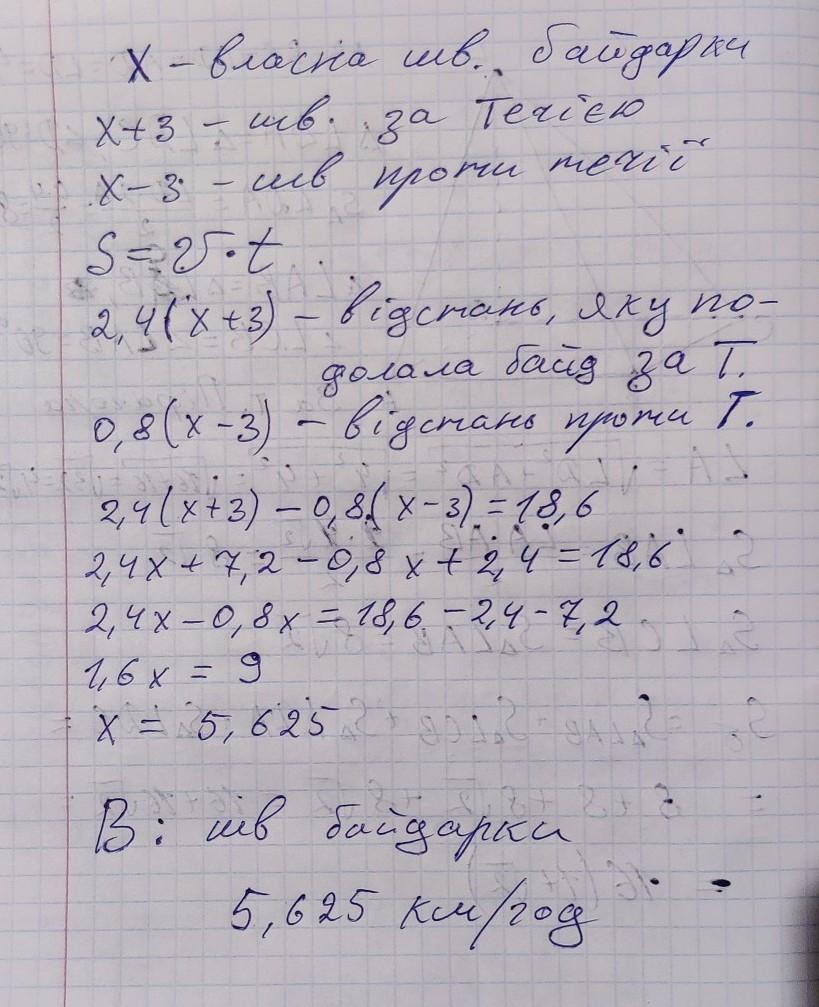 x – власна шв. байдарки
x+3 – шв. за течією
x-3 – шв проти течії
S = v·t
2,4(x+3) – відстань, яку по-
долала байд за т.
0,8(x-3) – відстань проти т.
2,4(x+3) - 0,8(x-3) = 18,6
2,4x + 7,2 - 0,8x + 2,4 = 18,6
2,4x - 0,8x = 18,6 - 2,4 - 7,2
1,6x = 9
x = 5,625
В: шв байдарки
5,625 км/год